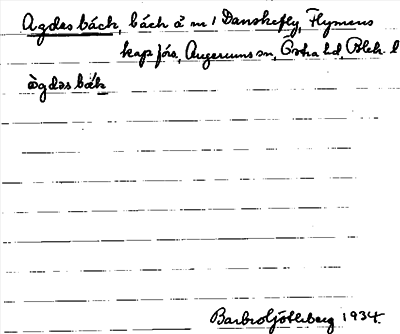 Agdas bäck, bäck å m / Danskefly, Flymens
kap förs, Augerums sn, Östra hd, Blek. l
àgdəs bäk
Barbro Götlberg 1934.